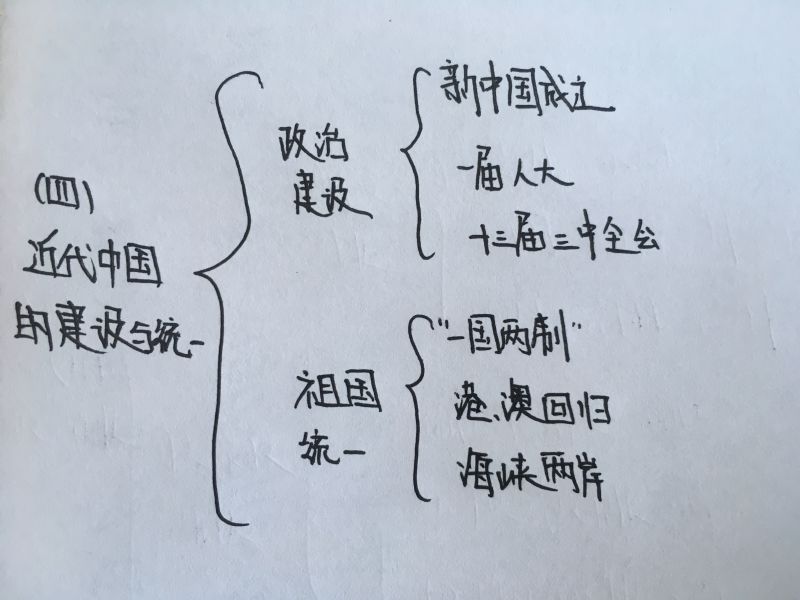 (四)
近代中国
的建设与统一
政治
建设
新中国成立
一届人大
十三届三中全会
祖国
统一
"一国两制"
港、澳回归
海峡两岸